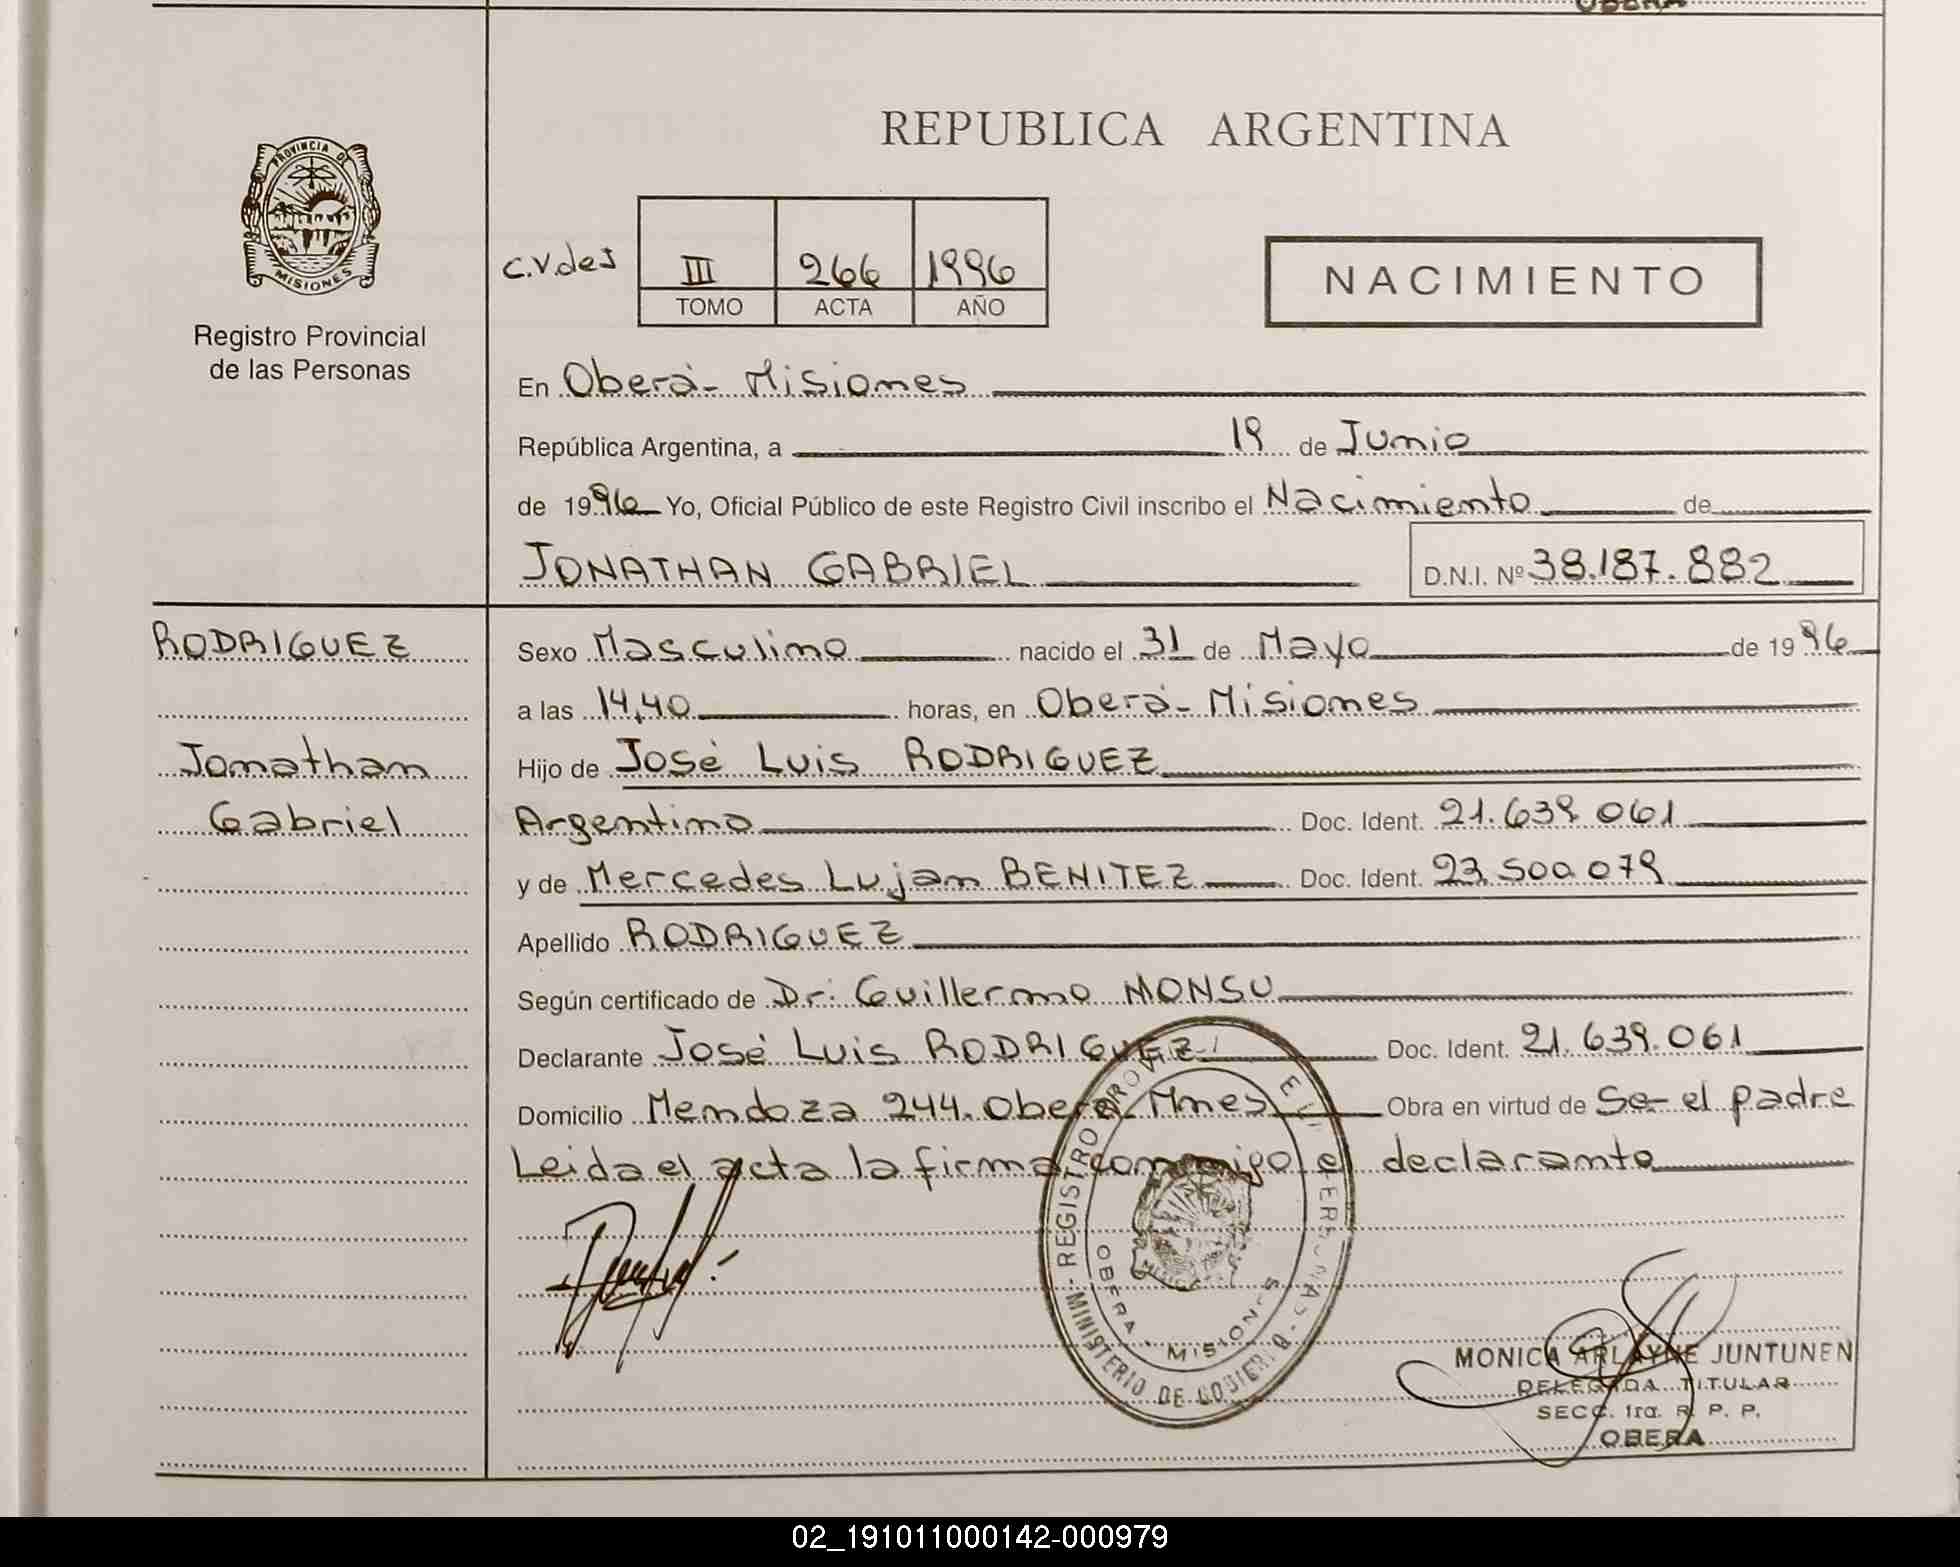 OBERA
PROVINCIA DE
MISIONES
Registro Provincial
de las Personas
REPUBLICA ARGENTINA
C.V.des III 266 1996
TOMO ACTA AÑO
NACIMIENTO
En Oberá- Misiones
República Argentina, a 19 de Junio
de 1996 Yo, Oficial Público de este Registro Civil inscribo el Nacimiento de
JONATHAN GABRIEL D.N.I. Nº 38.187.882
RODRIGUEZ
Jonathan
Gabriel
Sexo Masculino nacido el 31 de Mayo de 1996
a las 14,40 horas, en Oberá- Misiones
Hijo de José Luis RODRIGUEZ
Argentino Doc. Ident. 21.639.061
y de Mercedes Lujan BENITEZ Doc. Ident. 23.500.079
Apellido RODRIGUEZ
Según certificado de Dr: Guillermo MONSU
Declarante José Luis RODRIGUEZ Doc. Ident. 21.639.061
Domicilio Mendoza 244. Oberá- Mnes Obra en virtud de Se- el padre
Leida el acta la firma conmigo el declarante
REGISTRO PROV
PERSONAS
MINISTERIO DE GOBIERNO
OBERA - MISIONES
MONICA ARLAYNE JUNTUNEN
DELEGADA TITULAR
SECC. 1ra. R. P. P.
OBERA
02_191011000142-000979